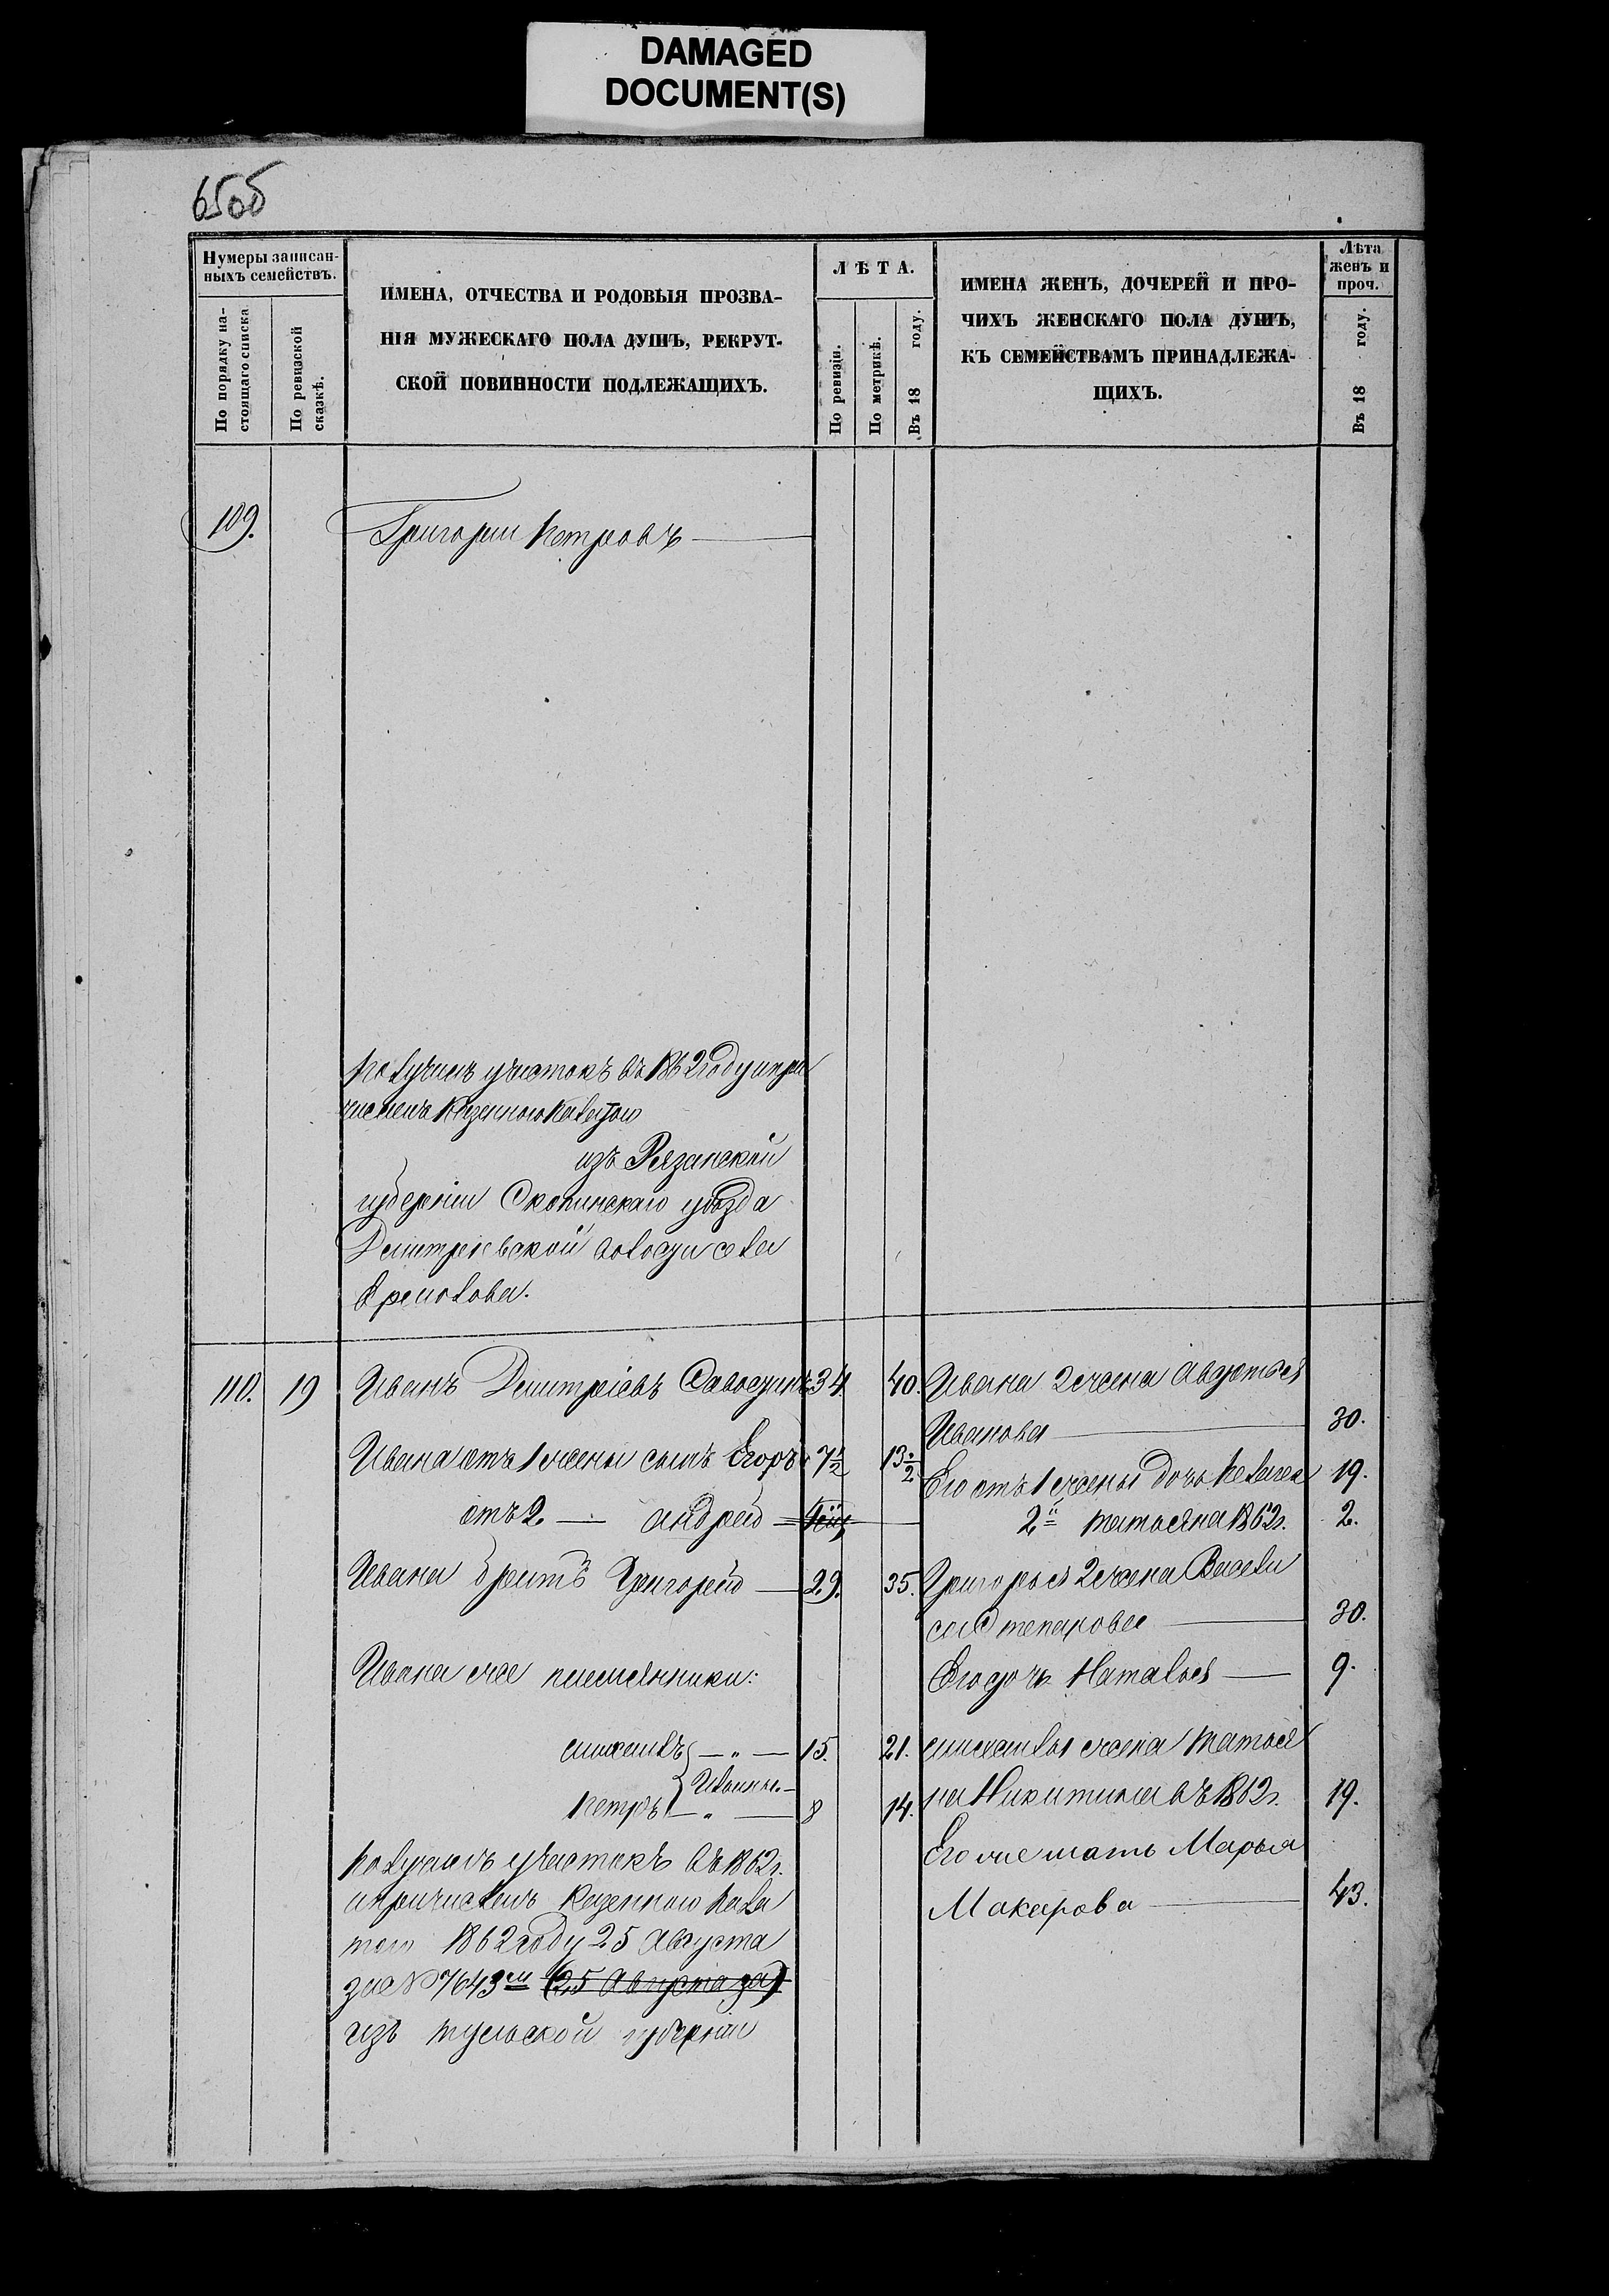 DAMAGED
DOCUMENT(S)
65об
Нумеры записан-
ныхъ семействъ.
По порядку на-
стоящаго списка
По ревизской
сказкѣ.
ИМЕНА, ОТЧЕСТВА И РОДОВЫЯ ПРОЗВА-
НІЯ МУЖЕСКАГО ПОЛА ДУШЪ, РЕКРУТ-
СКОЙ ПОВИННОСТИ ПОДЛЕЖАЩИХЪ.
ЛѢТА.
По ревизіи.
По метрикѣ.
Въ 18 году.
ИМЕНА ЖЕНЪ, ДОЧЕРЕЙ И ПРО-
ЧИХЪ ЖЕНСКАГО ПОЛА ДУШЪ,
КЪ СЕМЕЙСТВАМЪ ПРИНАДЛЕЖА-
ЩИХЪ.
Лѣта
женъ и
проч.
Въ 18 году.
109. Григории Петровъ
Получилъ участокъ въ 1862 году и при
численъ Казенною Палатою
изъ Рязанской
губерніи Скопинскаго уѣзда
Дмитріевской волости села
110. 19 Иванъ Дмитріевъ 34. 40. Ивана 2 жена Авдотья
Иванова 30.
Ивана отъ 1 жены сынъ Егоръ 7½ 13½ Его отъ 1 жены дочь Пелагея 19.
отъ 2. — Андрей 2й Татьяна 1862г. 2.
Ивана братъ Григорей 29. 35. Григорья 2 жена Васели
са Степанова 30.
Ивана же племянники: Его дочь Наталья 9.
Михаилъ — „ — 15. 21. Михаилы жена Татья
Ивановы
Петръ — „ — 8 14. на Никитина въ 1862г. 19.
Получилъ участокъ въ 1862г. Его же мать Марья
и причисленъ Казенною Пала Макарова 43.
тою 1862 году 25 Августа
за № 7643м (25 Августа за)
изъ Тульской губерніи